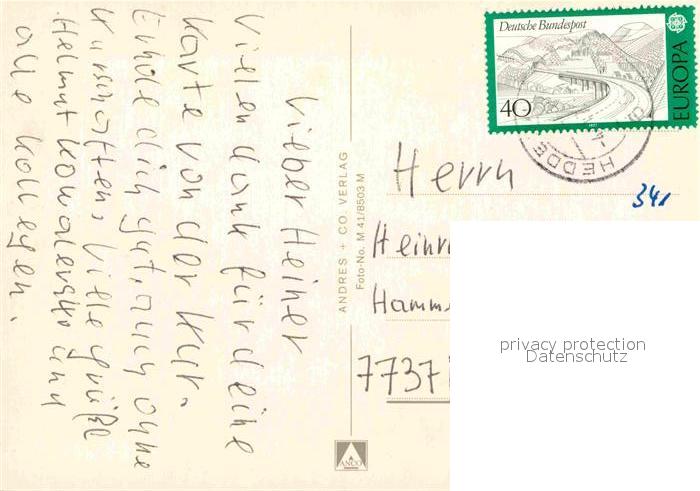 Lieber Heiner
Vielen dank für deine
Karte von der Kur.
Erhole dich gut, auch ohne
Kurschatten, viele Grüße
Helmut Kowalersko und
alle Kollegen.
ANDRES + CO. VERLAG
Foto-No. M 41/8503 M
ANCO
Deutsche Bundespost
40
EUROPA
HEDDE
341
Herrn
Heinr
Hamm
7737
privacy protection
Datenschutz